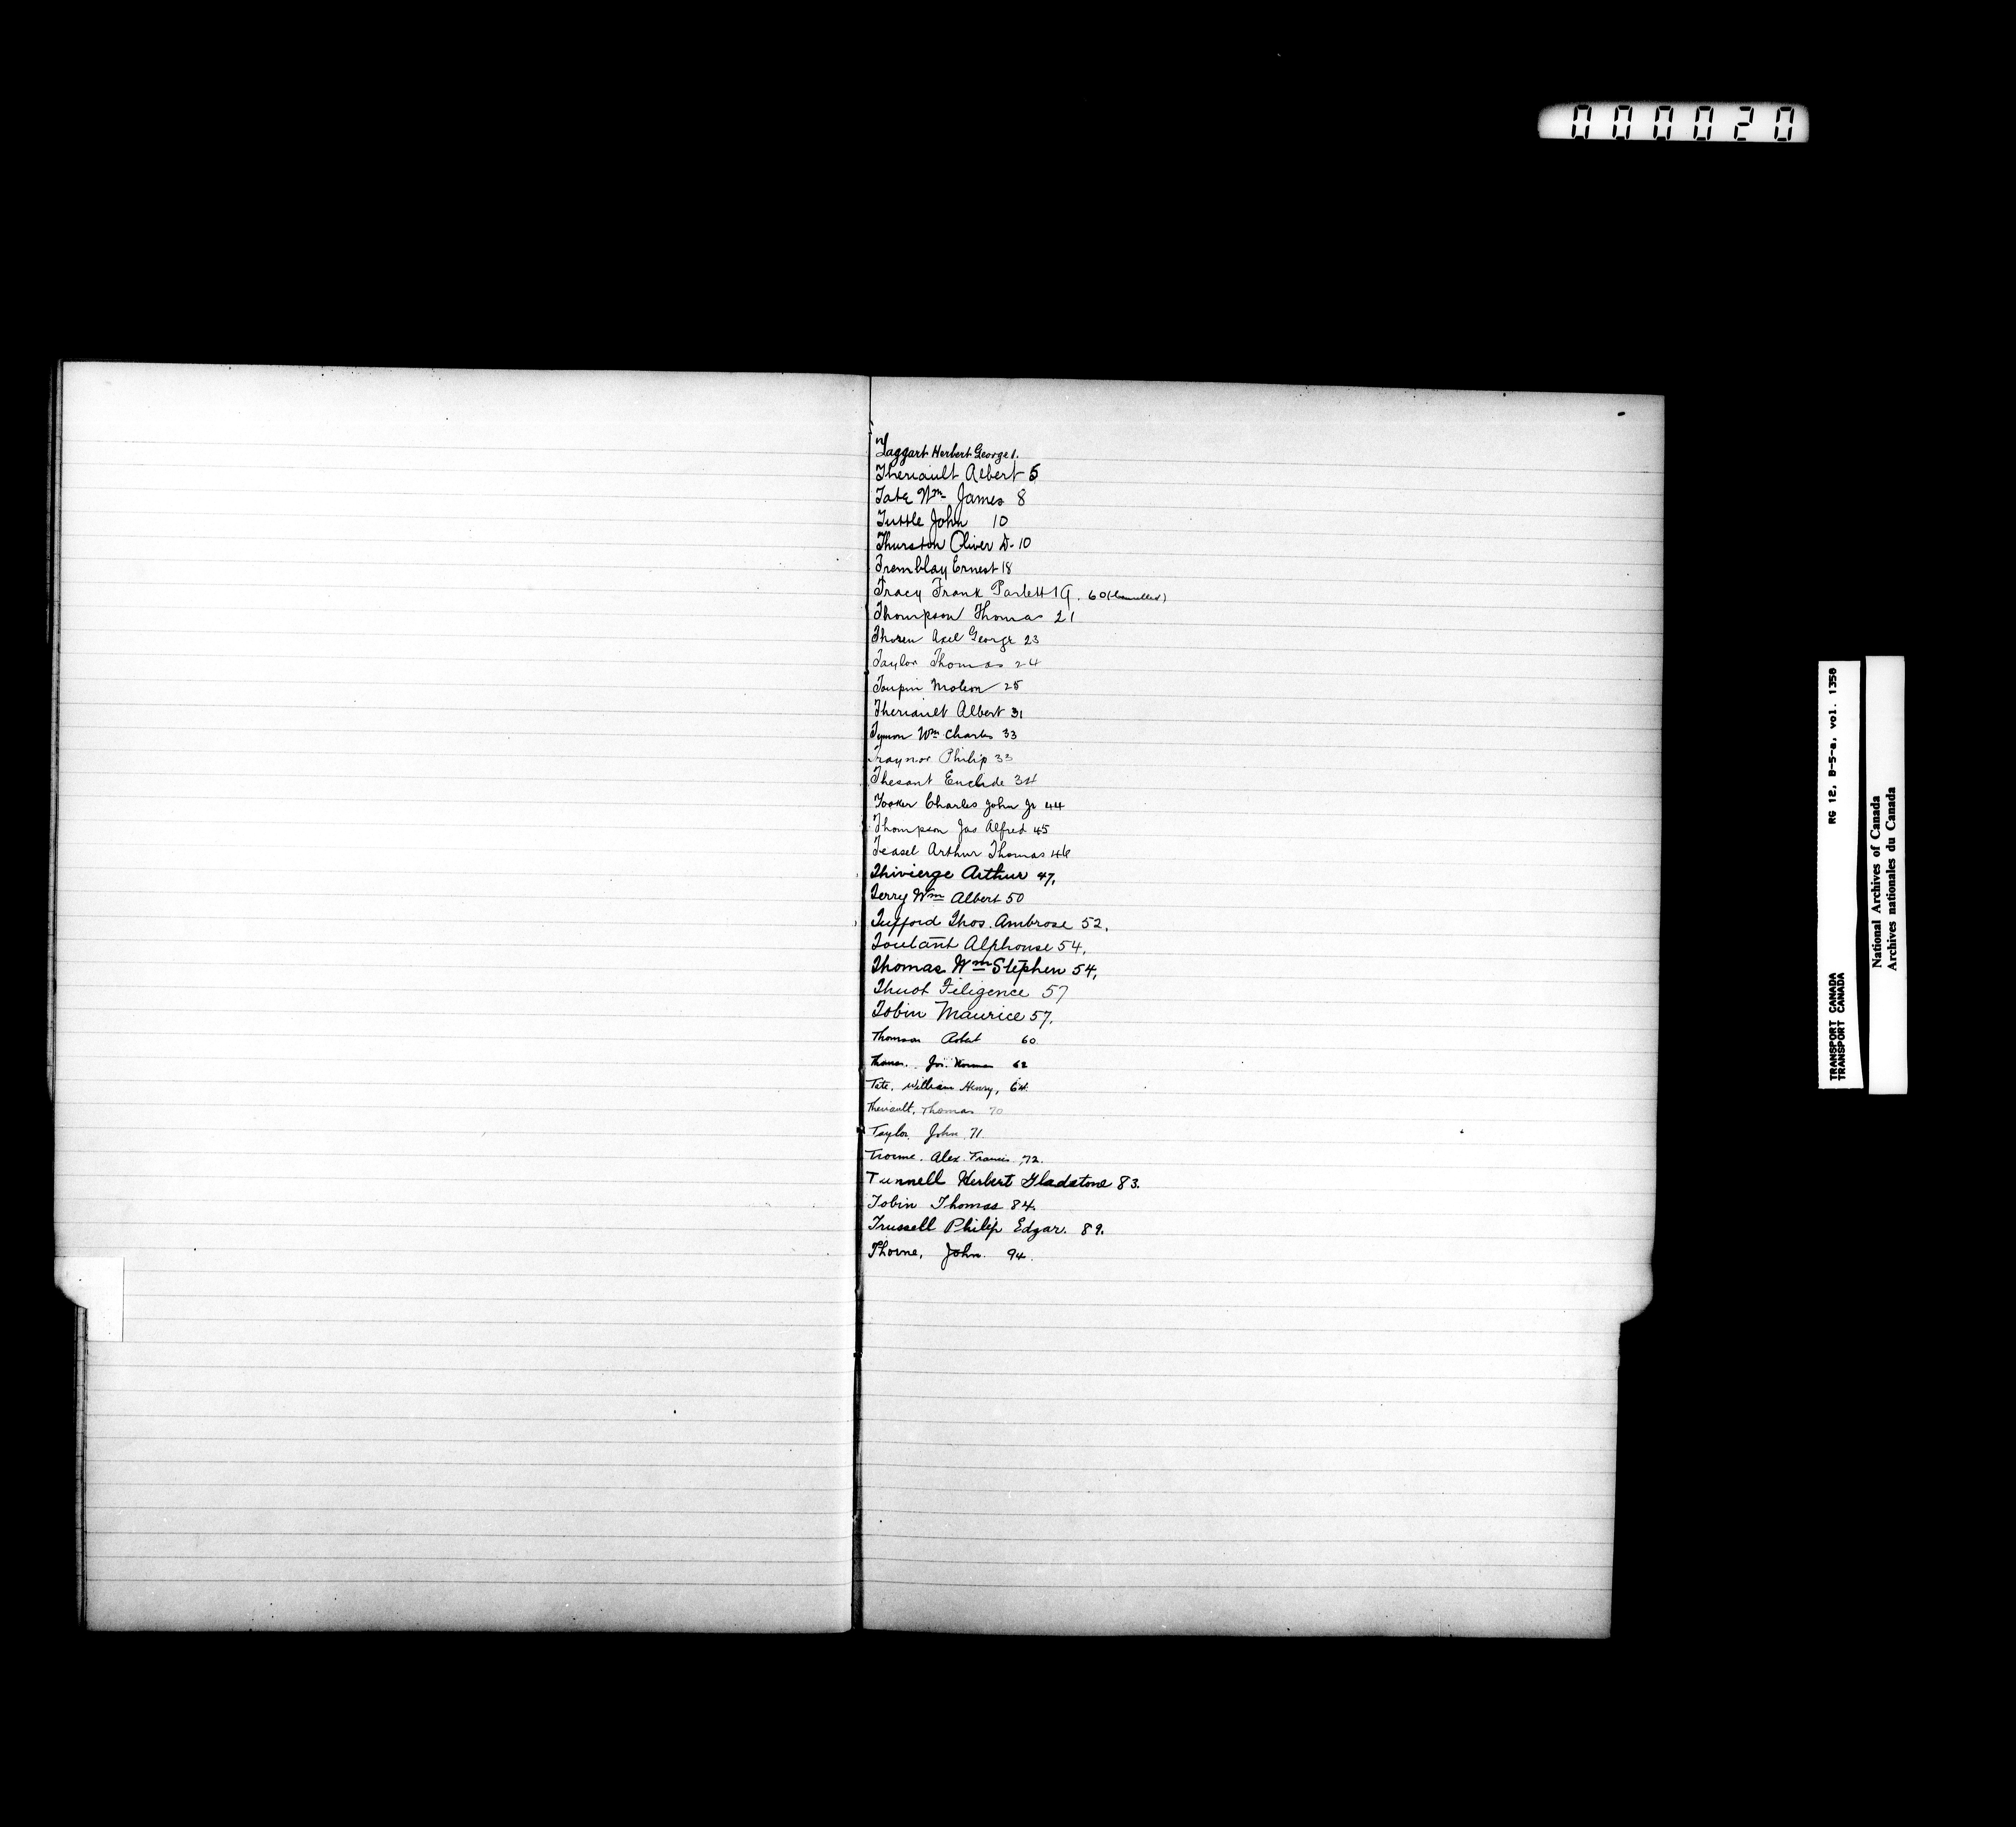 000020
Taggart Herbert George 1.
Theriault Albert 5
Tate Wm James 8
Tuttle John 10
Thurston Oliver D. 10
Tremblay Ernest 18
Tracy Frank 19. 60 (Cancelled)
Thompson Thomas 21
Thoren Axel George 23
Taylor Thomas 24
Toupin 25
Theriault Albert 31
Tymon Wm Charles 33
Traynor Philip 33
Euclide 34
Tooker Charles John Jr 44
Thompson Jas Alfred 45
Teasel Arthur Thomas 46
Thivierge Arthur 47,
Terry Wm Albert 50
Tufford Thos. Ambrose 52,
Toutant Alphonse 54,
Thomas Wm Stephen 54,
Thuot 57
Tobin Maurice 57,
Thomson Robert 60
Norman 62
Tate, William Henry, 64.
Theriault, Thomas 70
Taylor, John 71.
Alex. Francis 72.
Tunnell Herbert Gladstone 83.
Tobin Thomas 84.
Trussell Philip Edgar. 89.
Thorne, John. 94.
TRANSPORT CANADA RG 12, B-5-a, vol. 1358
TRANSPORT CANADA
National Archives of Canada
Archives nationales du Canada